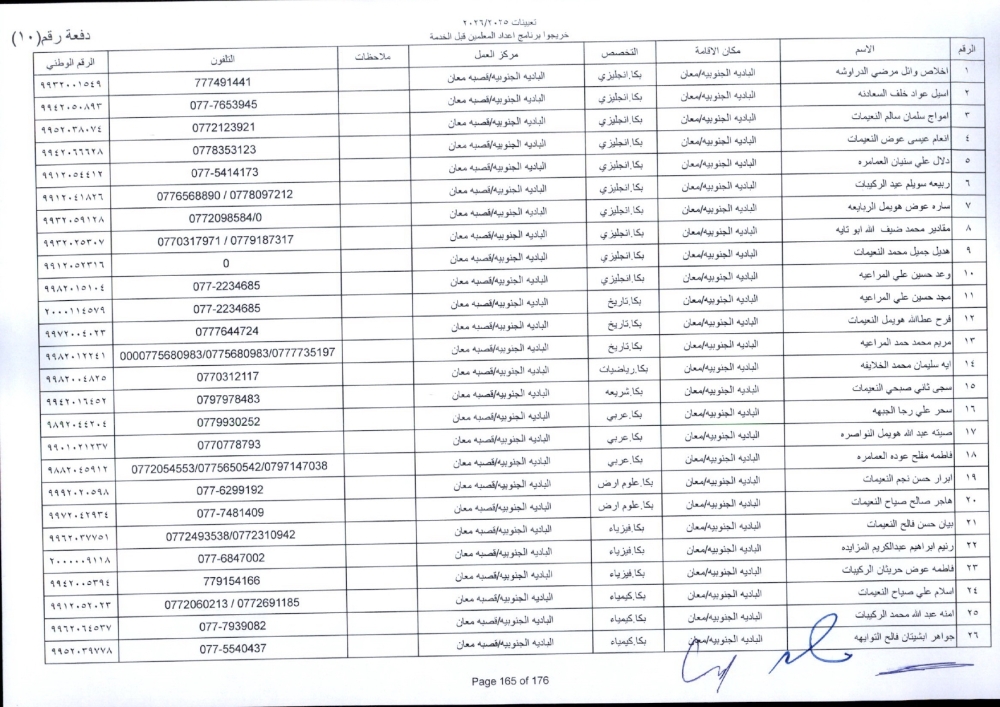 تعيينات ٢٠٢٦/٢٠٢٥
خريجوا برنامج اعداد المعلمين قبل الخدمة
دفعة رقم(١٠)
الرقم الاسم مكان الاقامة التخصص مركز العمل ملاحظات التلفون الرقم الوطني
١ اخلاص وائل مرضي الدراوشه الباديه الجنوبيه/معان بكا.انجليزي الباديه الجنوبيه/قصبه معان 777491441 ٩٩٣٢٠٠١٥٤٩
٢ اسيل عواد خلف السعادنه الباديه الجنوبيه/معان بكا.انجليزي الباديه الجنوبيه/قصبه معان 077-7653945 ٩٩٤٢٠٥٠٨٩٣
٣ امواج سلمان سالم النعيمات الباديه الجنوبيه/معان بكا.انجليزي الباديه الجنوبيه/قصبه معان 0772123921 ٩٩٥٢٠٣٨٠٧٤
٤ انعام عيسى عوض النعيمات الباديه الجنوبيه/معان بكا.انجليزي الباديه الجنوبيه/قصبه معان 0778353123 ٩٩٤٢٠٦٦٦٢٨
٥ دلال علي سنيان العمامره الباديه الجنوبيه/معان بكا.انجليزي الباديه الجنوبيه/قصبه معان 077-5414173 ٩٩١٢٠٥٤٤١٢
٦ ربيعه سويلم عيد الركيبات الباديه الجنوبيه/معان بكا.انجليزي الباديه الجنوبيه/قصبه معان 0776568890 / 0778097212 ٩٩١٢٠٤١٨٢٦
٧ ساره عوض هويمل الربايعه الباديه الجنوبيه/معان بكا.انجليزي الباديه الجنوبيه/قصبه معان 0772098584/0 ٩٩٣٢٠٥٩١٢٨
٨ مقادير محمد ضيف الله ابو تايه الباديه الجنوبيه/معان بكا.انجليزي الباديه الجنوبيه/قصبه معان 0770317971 / 0779187317 ٩٩٣٢٠٢٥٣٠٧
٩ هديل جميل محمد النعيمات الباديه الجنوبيه/معان بكا.انجليزي الباديه الجنوبيه/قصبه معان 0 ٩٩١٢٠٥٢٣١٦
١٠ وعد حسين علي المراعيه الباديه الجنوبيه/معان بكا.انجليزي الباديه الجنوبيه/قصبه معان 077-2234685 ٩٩٨٢٠١٥١٠٤
١١ مجد حسين علي المراعيه الباديه الجنوبيه/معان بكا.تاريخ الباديه الجنوبيه/قصبه معان 077-2234685 ٢٠٠٠١١٤٥٧٩
١٢ فرح عطاالله هويمل النعيمات الباديه الجنوبيه/معان بكا.تاريخ الباديه الجنوبيه/قصبه معان 0777644724 ٩٩٧٢٠٠٤٠٢٣
١٣ مريم محمد حمد المراعيه الباديه الجنوبيه/معان بكا.تاريخ الباديه الجنوبيه/قصبه معان 0000775680983/0775680983/0777735197 ٩٩٨٢٠١٢٢٤١
١٤ ايه سليمان محمد الخلايفه الباديه الجنوبيه/معان بكا.رياضيات الباديه الجنوبيه/قصبه معان 0770312117 ٩٩٨٢٠٠٤٨٢٥
١٥ سجى ثاني صبحي النعيمات الباديه الجنوبيه/معان بكا.شريعه الباديه الجنوبيه/قصبه معان 0797978483 ٩٩٤٢٠١٦٤٥٢
١٦ سحر علي رجا الجبهه الباديه الجنوبيه/معان بكا.عربي الباديه الجنوبيه/قصبه معان 0779930252 ٩٨٩٢٠٤٤٢٠٤
١٧ صيته عبد الله هويمل النواصره الباديه الجنوبيه/معان بكا.عربي الباديه الجنوبيه/قصبه معان 0770778793 ٩٩٠١٠٢١٢٣٧
١٨ فاطمه مفلح عوده العمامره الباديه الجنوبيه/معان بكا.عربي الباديه الجنوبيه/قصبه معان 0772054553/0775650542/0797147038 ٩٨٨٢٠٤٥٩١٢
١٩ ابرار حسن نجم النعيمات الباديه الجنوبيه/معان بكا.علوم ارض الباديه الجنوبيه/قصبه معان 077-6299192 ٩٩٩٢٠٢٠٥٩٨
٢٠ هاجر صالح صياح النعيمات الباديه الجنوبيه/معان بكا.علوم ارض الباديه الجنوبيه/قصبه معان 077-7481409 ٩٩٧٢٠٤٢٩٣٤
٢١ بيان حسن فالح النعيمات الباديه الجنوبيه/معان بكا.فيزياء الباديه الجنوبيه/قصبه معان 0772493538/0772310942 ٩٩٦٢٠٣٧٧٥١
٢٢ رنيم ابراهيم عبدالكريم المزايده الباديه الجنوبيه/معان بكا.فيزياء الباديه الجنوبيه/قصبه معان 077-6847002 ٢٠٠٠٠٠٩١١٨
٢٣ فاطمه عوض حريثان الركيبات الباديه الجنوبيه/معان بكا.فيزياء الباديه الجنوبيه/قصبه معان 779154166 ٩٩٤٢٠٠٥٣٩٤
٢٤ اسلام علي صياح النعيمات الباديه الجنوبيه/معان بكا.كيمياء الباديه الجنوبيه/قصبه معان 0772060213 / 0772691185 ٩٩١٢٠٥٢٠٢٣
٢٥ امنه عبد الله محمد الركيبات الباديه الجنوبيه/معان بكا.كيمياء الباديه الجنوبيه/قصبه معان 077-7939082 ٩٩٦٢٠٦٤٥٣٧
٢٦ جواهر ابشيتان فالح التوايهه الباديه الجنوبيه/معان بكا.كيمياء الباديه الجنوبيه/قصبه معان 077-5540437 ٩٩٥٢٠٣٩٧٧٨
Page 165 of 176